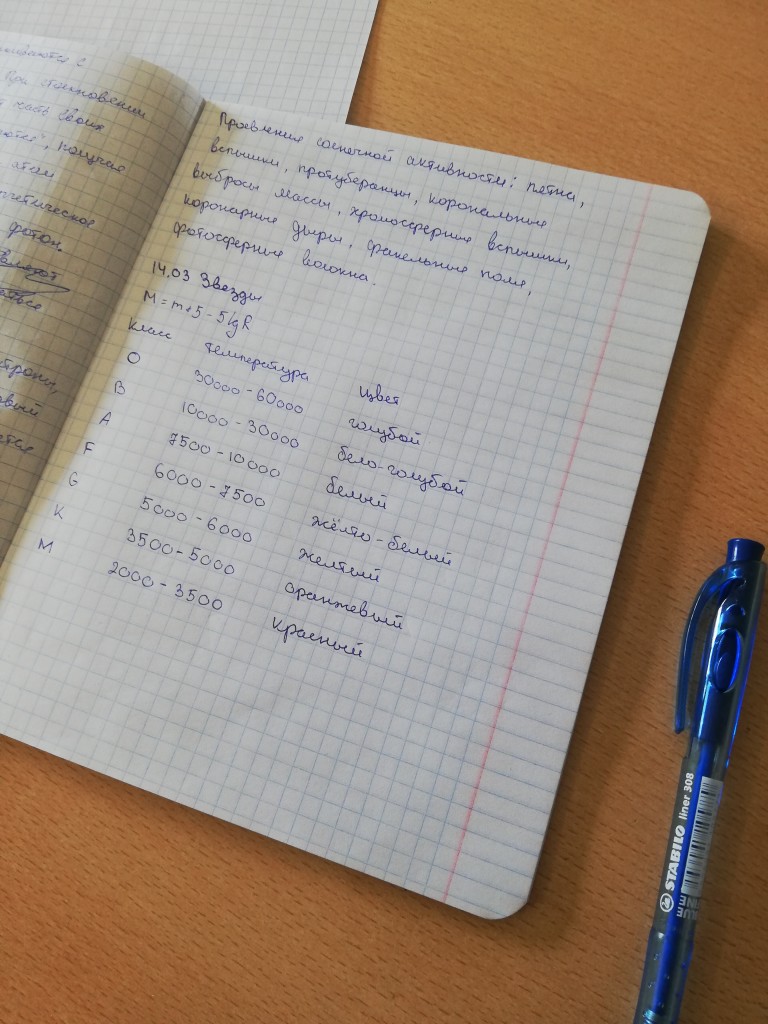 При столкновении
часть своих
получая
этом
фотон.
Проявления солнечной активности: пятна,
вспышки, протуберанцы, корональные
выбросы массы, хромосферные вспышки,
коронарные дыры, факельные поля,
фотосферные волокна.
14.03 Звезды
M = m + 5 - 5lgR
Класс Температура Цвет
O 30000 - 60000 голубой
B 10000 - 30000 бело-голубой
A 7500 - 10000 белый
F 6000 - 7500 жёлто-белый
G 5000 - 6000 желтый
K 3500 - 5000 оранжевый
M 2000 - 3500 красный
STABILO liner 308